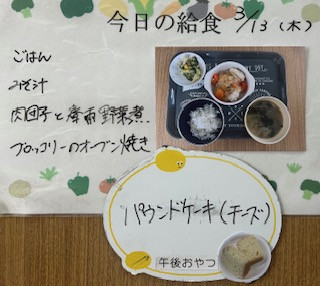 今日の給食 3/13 (木)
ごはん
みそ汁
肉団子と春雨野菜煮
ブロッコリーのオーブン焼き
パウンドケーキ(チーズ)
午後おやつ